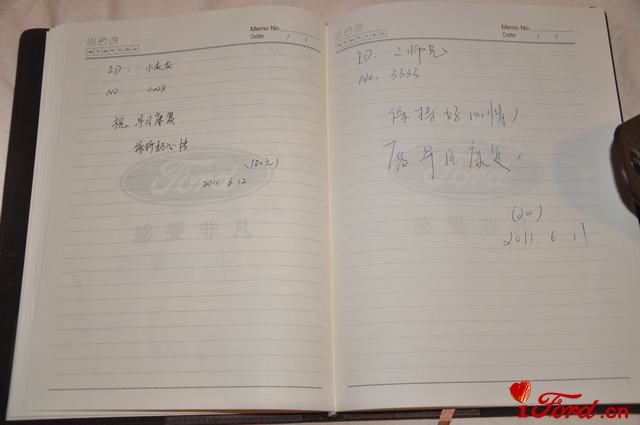 Memo No.
Date / /
ID: 小灰灰
NO. 0028
祝 早日康复
保持好心情
2011. 6. 12
Ford
感受非凡
Memo No.
Date / /
ID: 二师兄
NO. 3333
保持好心情!
早日康复!
(200)
2011. 6. 11
Ford
感受非凡
iFord.cn